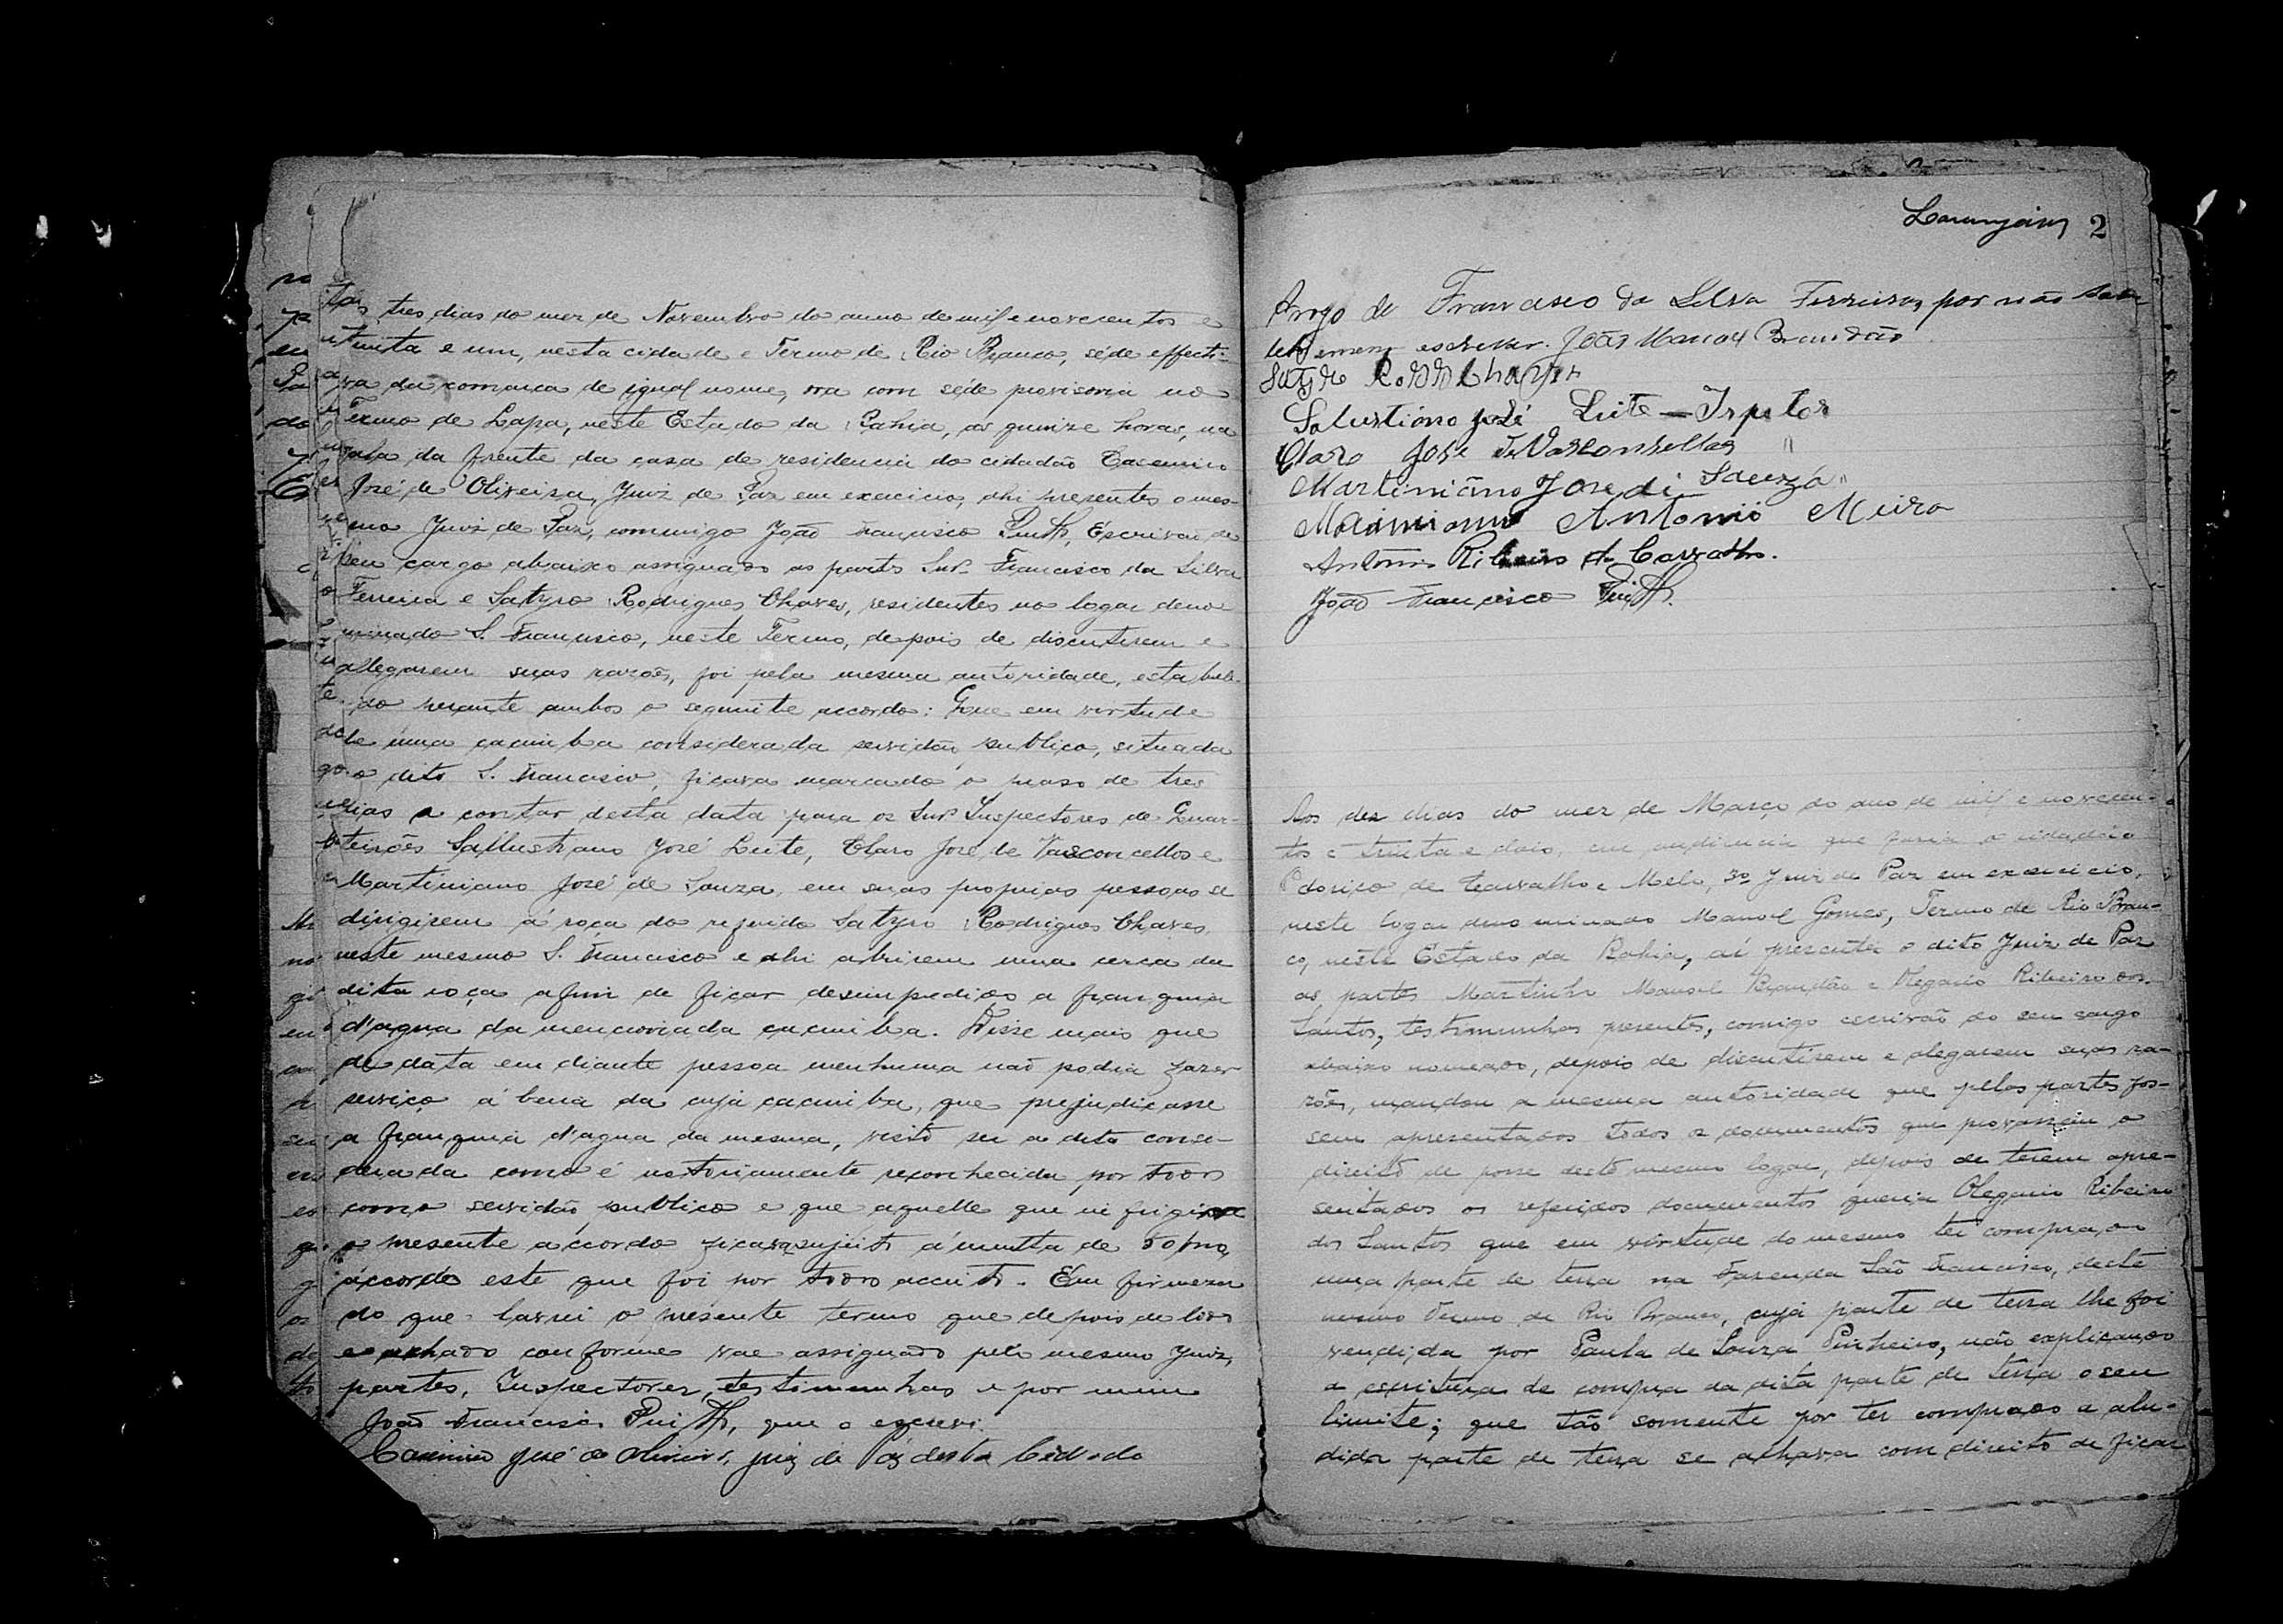 Aos tres dias do mez de Novembro do anno de mil e novecentos e
trinta e um, nesta cidade e Termo de Rio Branco, séde effecti-
va da comarca de igual nome, ora com séde provisoria no
Termo de Lapa, neste Estado da Bahia, ás quinze horas, na
sala da frente da casa de residencia do cidadão Casemiro
José de Oliveira, Juiz de Paz em exercicio, ahi presentes o mes-
mo Juiz de Paz, commigo João Francisco Escrivão de
seu cargo abaixo assignado as partes Snrs. Francisco da Silva
Ferreira e Satyro Rodrigues Chaves, residentes no logar deno
minado S. Francisco, neste Termo, depois de discutirem e
allegarem suas razões, foi pela mesma autoridade, estabele-
do perante ambos o seguinte accordo: Que em virtude
de uma cacimba considerada servidão publica, situada
o dito S. Francisco, ficava marcado o praso de tres
dias a contar desta data para os Snrs. Inspectores de Quar-
teirões Sallustiano José Leite, Claro José de Vasconcellos e
Martiniano José de Souza, em suas proprias pessoas se
dirigirem á roça do referido Satyro Rodrigues Chaves,
neste mesmo S. Francisco e ahi abrirem uma cerca da
dita roça afim de ficar desimpedido a franquia
d'agua da mencionada cacimba. Disse mais que
de data em diante pessoa nenhuma não podia fazer
serviço á beira da cuja cacimba, que prejudicasse
a franquia d'agua da mesma, visto ser a dita consi-
derada como é notoriamente reconhecida por todos
como servidão publica e que aquelle que infrigisse
o presente accordo ficava sujeito á multa de
accordo este que foi por todos acceito. Em firmeza
do que lavrei o presente termo que depois de lido
e achado conforme vae assignado pelo mesmo Juiz,
partes, Inspectores, testimunhas e por mim
João Francisco que o escrevi.
Casimiro José de Oliveira, juiz de Páz desta Cidade
Laranjeiras 2
Arogo de Francisco da Silva Ferreira, por não saber
ler enem escrever. João Manoel Brandão
Satyro Chaves
Salustiano José Leite — Ispetor
Claro José de Vasconsellos "
Martiniãno Jose di Souza "
Maximiano Antonio Meira
Antonio Ribeiro de Carvalho.
João Francisco
Aos dez dias do mez de Março do ano de mil e novecen-
tos e trinta e dois, em audiencia que fazia o cidadão
Odorico de Carvalho e Melo, 3º Juiz de Paz em exercicio,
neste logar denominado Manoel Gomes, Termo de Rio Bran-
co, neste Estado da Bahia, aí presente o dito Juiz de Paz
as partes Martinho Manoel Brandão e Olegario Ribeiro dos
Santos, testimunhas presentes, comigo escrivão do seu cargo
abaixo nomeado, depois de discutirem e alegarem suas ra-
zões, mandou a mesma autoridade que pelas partes fos-
sem apresentados todos os documentos que provassem o
direito de posse deste mesmo logar, depois de terem apre-
sentados os referidos documentos queria Olegario Ribeiro
dos Santos que em virtude do mesmo ter comprado
uma parte de terra na Fazenda São Francisco, deste
mesmo Termo de Rio Branco, cuja parte de terra lhe foi
vendida por Paula de Souza Pinheiro, não explicando
a escritura de compra da dita parte de terra o seu
limite; que tão somente por ter comprado a alu-
dida parte de terra se achava com direito de ficar